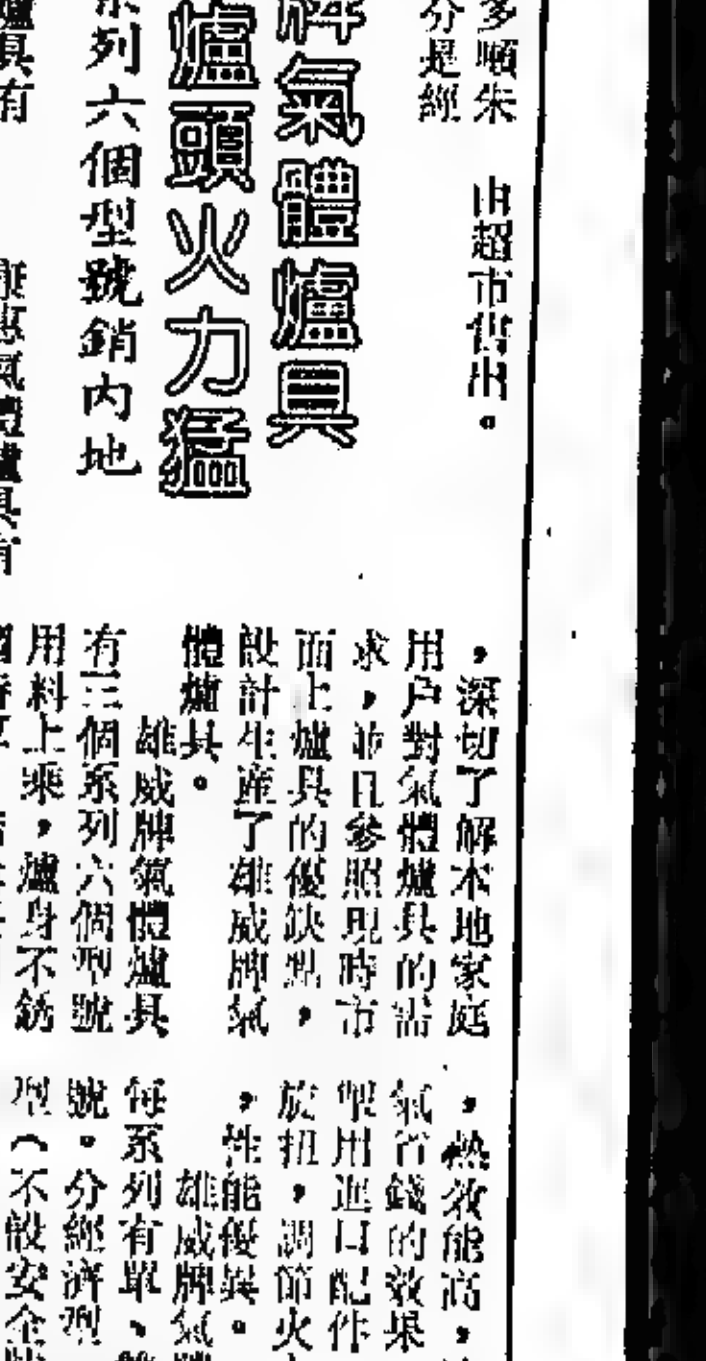 多噸朱
分是經
由超市售出。
牌氣體爐具
爐頭火力猛
系列六個型號銷內地
爐具有
康惠氣體爐具有
，深切了解本地家庭
用户對氣體爐具的需
求，並且參照現時市
面上爐具的優缺點，
設計生產了雄威牌氣
體爐具。
雄威牌氣體爐具
有三個系列六個型號
用料上乘，爐身不銹
，熱效能高，
氣省錢的效果
用進口配件
旋扭，調節火
，性能優異。
雄威牌氣體
每系列有單、
號。分經濟型
型（不設安全